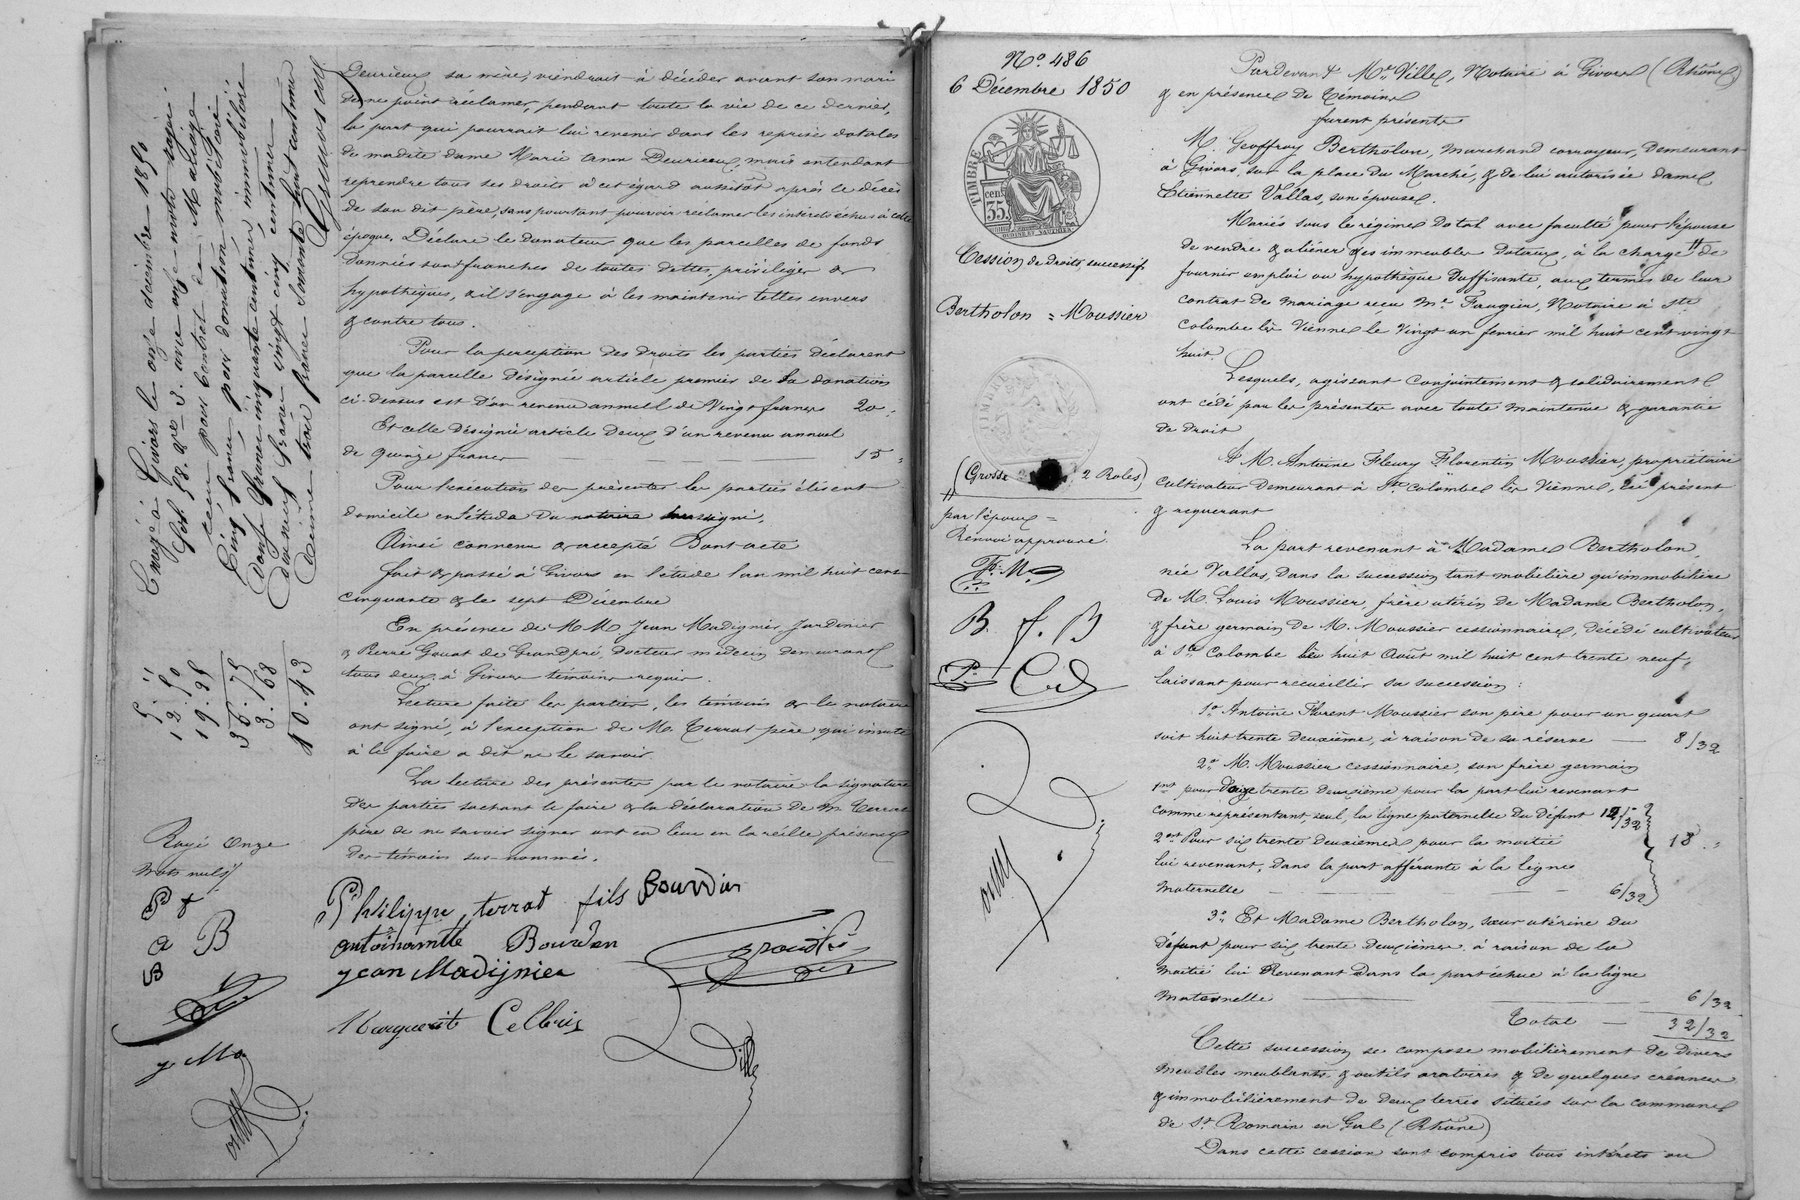 Deurieux sa mère, viendrait à décéder avant son mari
de ne point réclamer, pendant toute la vie de ce dernier,
la part qui pourrait lui revenir dans les reprises dotales
de madite dame Marie Anne Deurieux, mais entendant
reprendre tous ses droits à cet égard aussitôt après le décès
de son dit père, sans pourtant pouvoir réclamer les intérêts échus à cette
époque. Déclare le donateur que les parcelles de fonds
donnés sont franches de toutes dettes, privilèges &
hypothèques, & il s'engage à les maintenir telles envers
& contre tous.
Pour la perception des droits les parties déclarent
que la parcelle désignée article premier de la donation
ci-dessus est d'un revenu annuel de Vingt francs 20.
Et celle désignée article deux d'un revenu annuel
de quinze francs 15.
Pour l'exécution des présentes les parties élisent
domicile en l'étude du notaire soussigné.
Ainsi convenu & accepté Dont acte
fait & passé à Givors en l'étude l'an mil huit cent
cinquante & le sept Décembre
En présence de MM Jean Madignier, Jardinier
& Pierre Gouat de Grandpré, docteur médecin demeurant
tous deux à Givors témoins requis.
Lecture faite les parties, les témoins & le notaire
ont signé, à l'exception de M. Terrat père qui invité
à le faire a dit ne le savoir.
La lecture des présentes par le notaire la signature
des parties sachant le faire & la déclaration de M Terrat
père de ne savoir signer ont eu lieu en la réelle présence
des témoins sus-nommés.
Philippe terrat fils Bourdin
Bourdin
jean Madignier
Ville
Enreg.é à Givors le onze décembre 1850
fol. 58. v.° 3.
reçu pour Contrat de Mariage
Cinq francs, pour donation mobiliaire
douze francs cinquante centimes, immobiliaire
dix neuf francs vingt cinq centimes
Décime trois francs soixante huit centimes
5. "
12. 50
19. 25
36. 75
3. 68
40. 43
Rayé onze
mots nuls
B
B
J Ma
N.° 486
6 Décembre 1850
TIMBRE
35
Cession de droits successifs
Bertholon = Moussier
(Grosse 2 Roles)
par l'époux =
Renvoi approuvé.
F. M.
B f. B
Pardevant M.e Ville, Notaire à Givors (Rhône)
& en présence de témoins
furent présents
M. Geoffray Bertholon, marchand corroyeur, demeurant
à Givors, sur la place du Marché, & de lui autorisée dame
Etiennette Vallas, son épouse.
Mariés sous le régime dotal avec faculté pour l'épouse
de vendre & aliéner ses immeubles dotaux, à la charge de
fournir emploi ou hypothèque suffisante, aux termes de leur
contrat de mariage reçu M.e Faugier, Notaire à Ste
Colombe lès Vienne le Vingt un fevrier mil huit cent vingt
huit.
Lesquels, agissant conjointement & solidairement
ont cédé par les présentes avec toute maintenue & garantie
de droit
A M. Antoine Fleury Florentin Moussier, propriétaire
cultivateur demeurant à Ste Colombe lès Vienne, ici présent
& requerant
La part revenant à Madame Bertholon,
née Vallas, dans la succession tant mobilière qu'immobilière
de M. Louis Moussier, frère utérin de Madame Bertholon,
& frère germain de M. Moussier cessionnaire, décédé cultivateur
à Ste Colombe le huit Août mil huit cent trente neuf,
laissant pour recueillir sa succession :
1.° Antoine Florent Moussier son père pour un quart
soit huit trente deuxième, à raison de sa réserve 8/32
2.° M. Moussier cessionnaire, son frère germain
1ent pour douze trente deuxième pour la part lui revenant
comme représentant, seul, la ligne paternelle du défunt 12/32
2ent Pour six trente deuxièmes pour la moitié
lui revenant, dans la part afférante à la ligne 18.
maternelle 6/32
3.° Et Madame Bertholon, sœur utérine du
défunt pour six trente deuxièmes à raison de la
moitié lui Revenant dans la part échue à la ligne
maternelle 6/32
Total 32/32
Cette succession se compose mobilièrement de divers
meubles meublants, & outils aratoires & de quelques créances
& immobilièrement de deux terres situées sur la commune
de St Romain en Gal (Rhône)
Dans cette cession sont compris tous intérêts ou